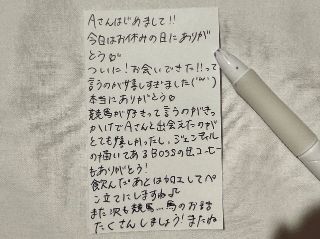 Aさんはじめまして!!
今日はお休みの日にありが
とう♡
ついに!お会いできた!!って
言うのが嬉しすぎました(""")
本当にありがとう♡
競馬が好きって言うのがきっ
かけでAさんと出会えたのが
とても嬉しかったし、ジェンティル
の描いてあるBOSSの缶コーヒー
もありがとう!
飲んだあとは加工してペ
ン立てにしますね♫
また次も競馬...馬のお話
たくさんしましょう!またね